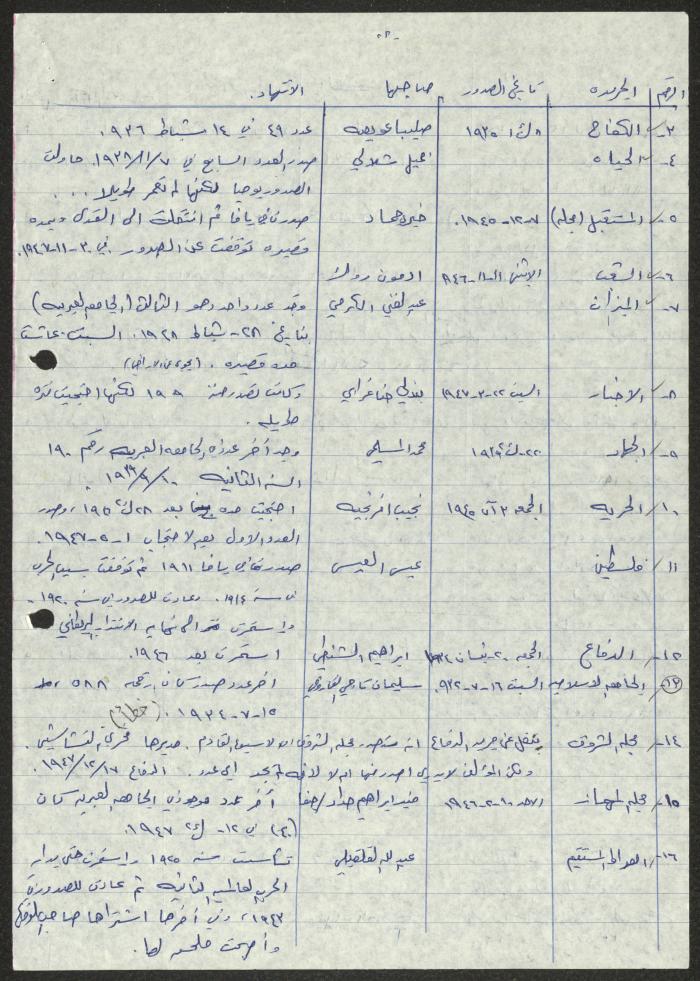 -٢-
الرقم الجريده تاريخ الصدور صاحبها الانتهاء.
٣- الكفاح ١٩٣٥ صليبا عويضه عدد ٤٩ في ١٤ شباط ١٩٣٦
٤- الحياه شلالي صدر العدد السابع في ١٩٣٨/١١/٧. حاولت
الصدور يوميا لكنها لم تعمر طويلا . . .
٥- المستقبل (مجله) ٧-١٢-١٩٤٥. خيري حماد صدرت في يافا ثم انتقلت الى القدس وبمده
قصيره توقفت عن الصدور في ٣٠-١١-١٩٤٧.
٦- الشعب الاثنين ١١-١١-٩٤٦ ادمون روك
٧- الميزان عبد الغني الكرمي وجد عدد واحد وهو الثالث (الجامعه العبريه)
بتاريخ ٢٨- شباط ١٩٢٨. السبت. عاشت
مده قصيره.
٨- الاخبار السبت ٢٢-٣-١٩٤٧ بندلي حنا غرابي وكانت تصدر سنة ١٩٠٩ لكنها احتجبت مده
طويله.
٩- الجهاد ٢٢- محمد السليمي وجد آخر عدد في الجامعه العبريه رقم ١٩٠
السنه الثانيه
١٠- الحريه الجمعه ٣ آب ١٩٤٥ نجيب افرنجيه احتجبت مده بعد ٢٨ ، وصدر
العدد الاول بعد الاحتجاب ١-٥-١٩٤٧.
١١- فلسطين عيسى العيسى صدرت في يافا ١٩١١ ثم توقفت بسبب الحرب
في سنة ١٩١٤. وعادت للصدور في سنة ١٩٢٠-
واستمرت الى نهايه الانتداب البريطاني
١٢- الدفاع الجمعه ٢٠- نيسان ابراهيم الشنطي استمرت بعد ١٩٤٦.
١٣- الجامعه الاسلاميه السبت ١٦-٧-٩٣٢. سليمان تاجي الفاروقي آخر عدد صدر كان رقمه ٥٨٨
١٥-٧-١٩٣٤. (خطأ؟)
١٤- مجله الشروق ينقل عن جريده الدفاع انه ستصدر مجله الشروق الاسبوع القادم. مديرها فخري النشاشيبي.
ولكن المؤلف لا يدري اصدرت ام لا لانه لم يجد اي عدد. الدفاع ١٩٤٧/١٢/١٧.
١٥- مجله المهماز الاحد ١٠-٢-١٩٤٦ منير ابراهيم حداد/حيفا آخر عدد موجود في الجامعه العبريه كان
(٤٠) في ١٢- ك٢ ١٩٤٧
١٦- الصراط المستقيم عبد الله القلقيلي تأسست سنه ١٩٢٥ واستمرت حتى بدايه
الحرب العالميه الثانيه ثم عادت للصدور في
١٩٤٣، وفي آخرها اشتراها صاحب
وأصبحت ملحق لها.